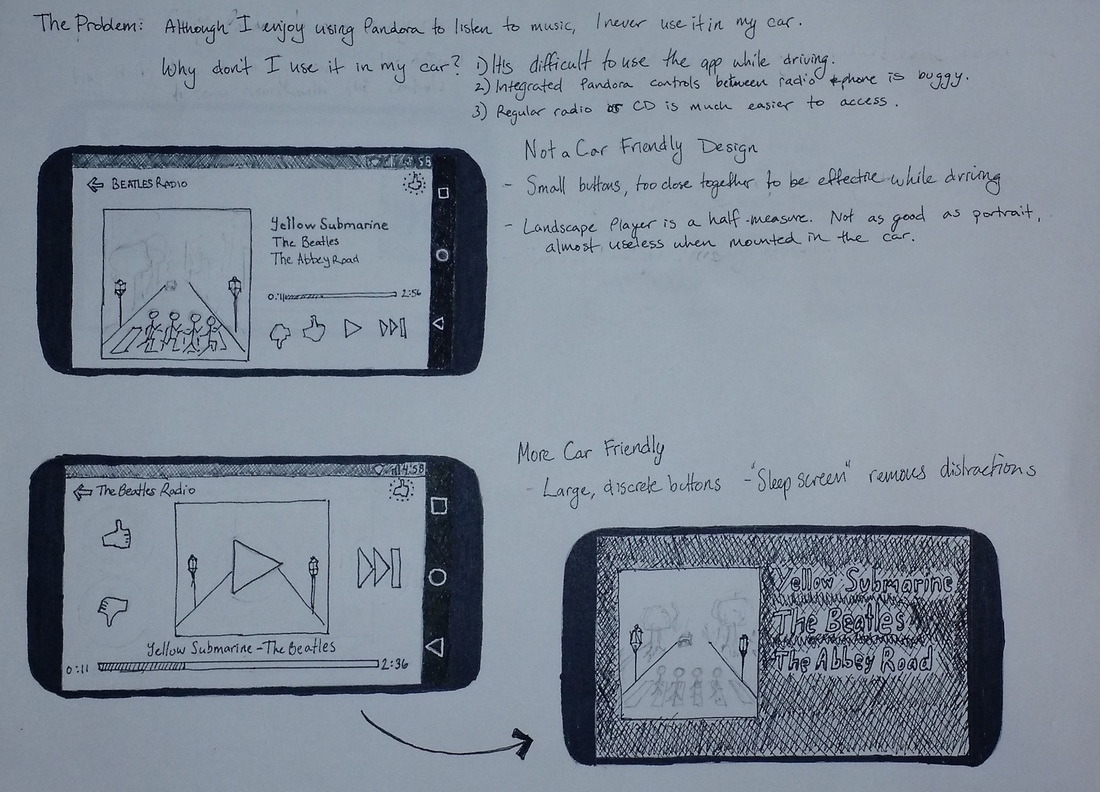 The Problem: Although I enjoy using Pandora to listen to music, I never use it in my car.
Why don't I use it in my car? 1) It's difficult to use the app while driving.
2) Integrated Pandora controls between radio & phone is buggy.
3) Regular radio or CD is much easier to access.
Not a Car Friendly Design
- Small buttons, too close together to be effective while driving
- Landscape Player is a half-measure. Not as good as portrait,
almost useless when mounted in the car.
BEATLES RADIO
Yellow Submarine
The Beatles
The Abbey Road
0:11 2:56
More Car Friendly
- Large, discrete buttons - "Sleep screen" removes distractions
4:58
The Beatles Radio
Yellow Submarine - The Beatles
0:11 2:36
Yellow Submarine
The Beatles
The Abbey Road